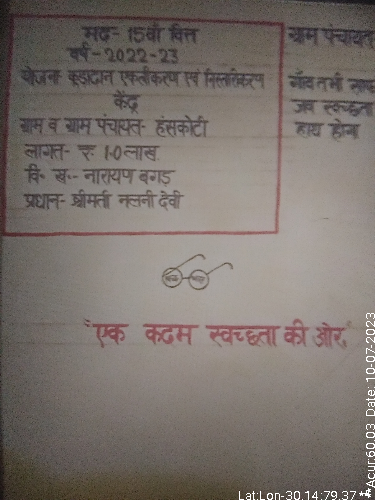 मद- 15वां वित्त
वर्ष- 2022-23
योजना कूड़ादान एकत्रीकरण एवं निस्तारीकरण
केंद्र
ग्राम व ग्राम पंचायत- हंसकोटी
लागत- रु. 1.0 लाख
वि. ख.- नारायण बगड़
प्रधान- श्रीमती नलनी देवी
ग्राम पंचायत
जब स्वच्छता
हाथ होगा
"एक कदम स्वच्छता की ओर"
Lat:Lon-30.14:79.37 **
Acur:60.03 Date: 10-07-2023